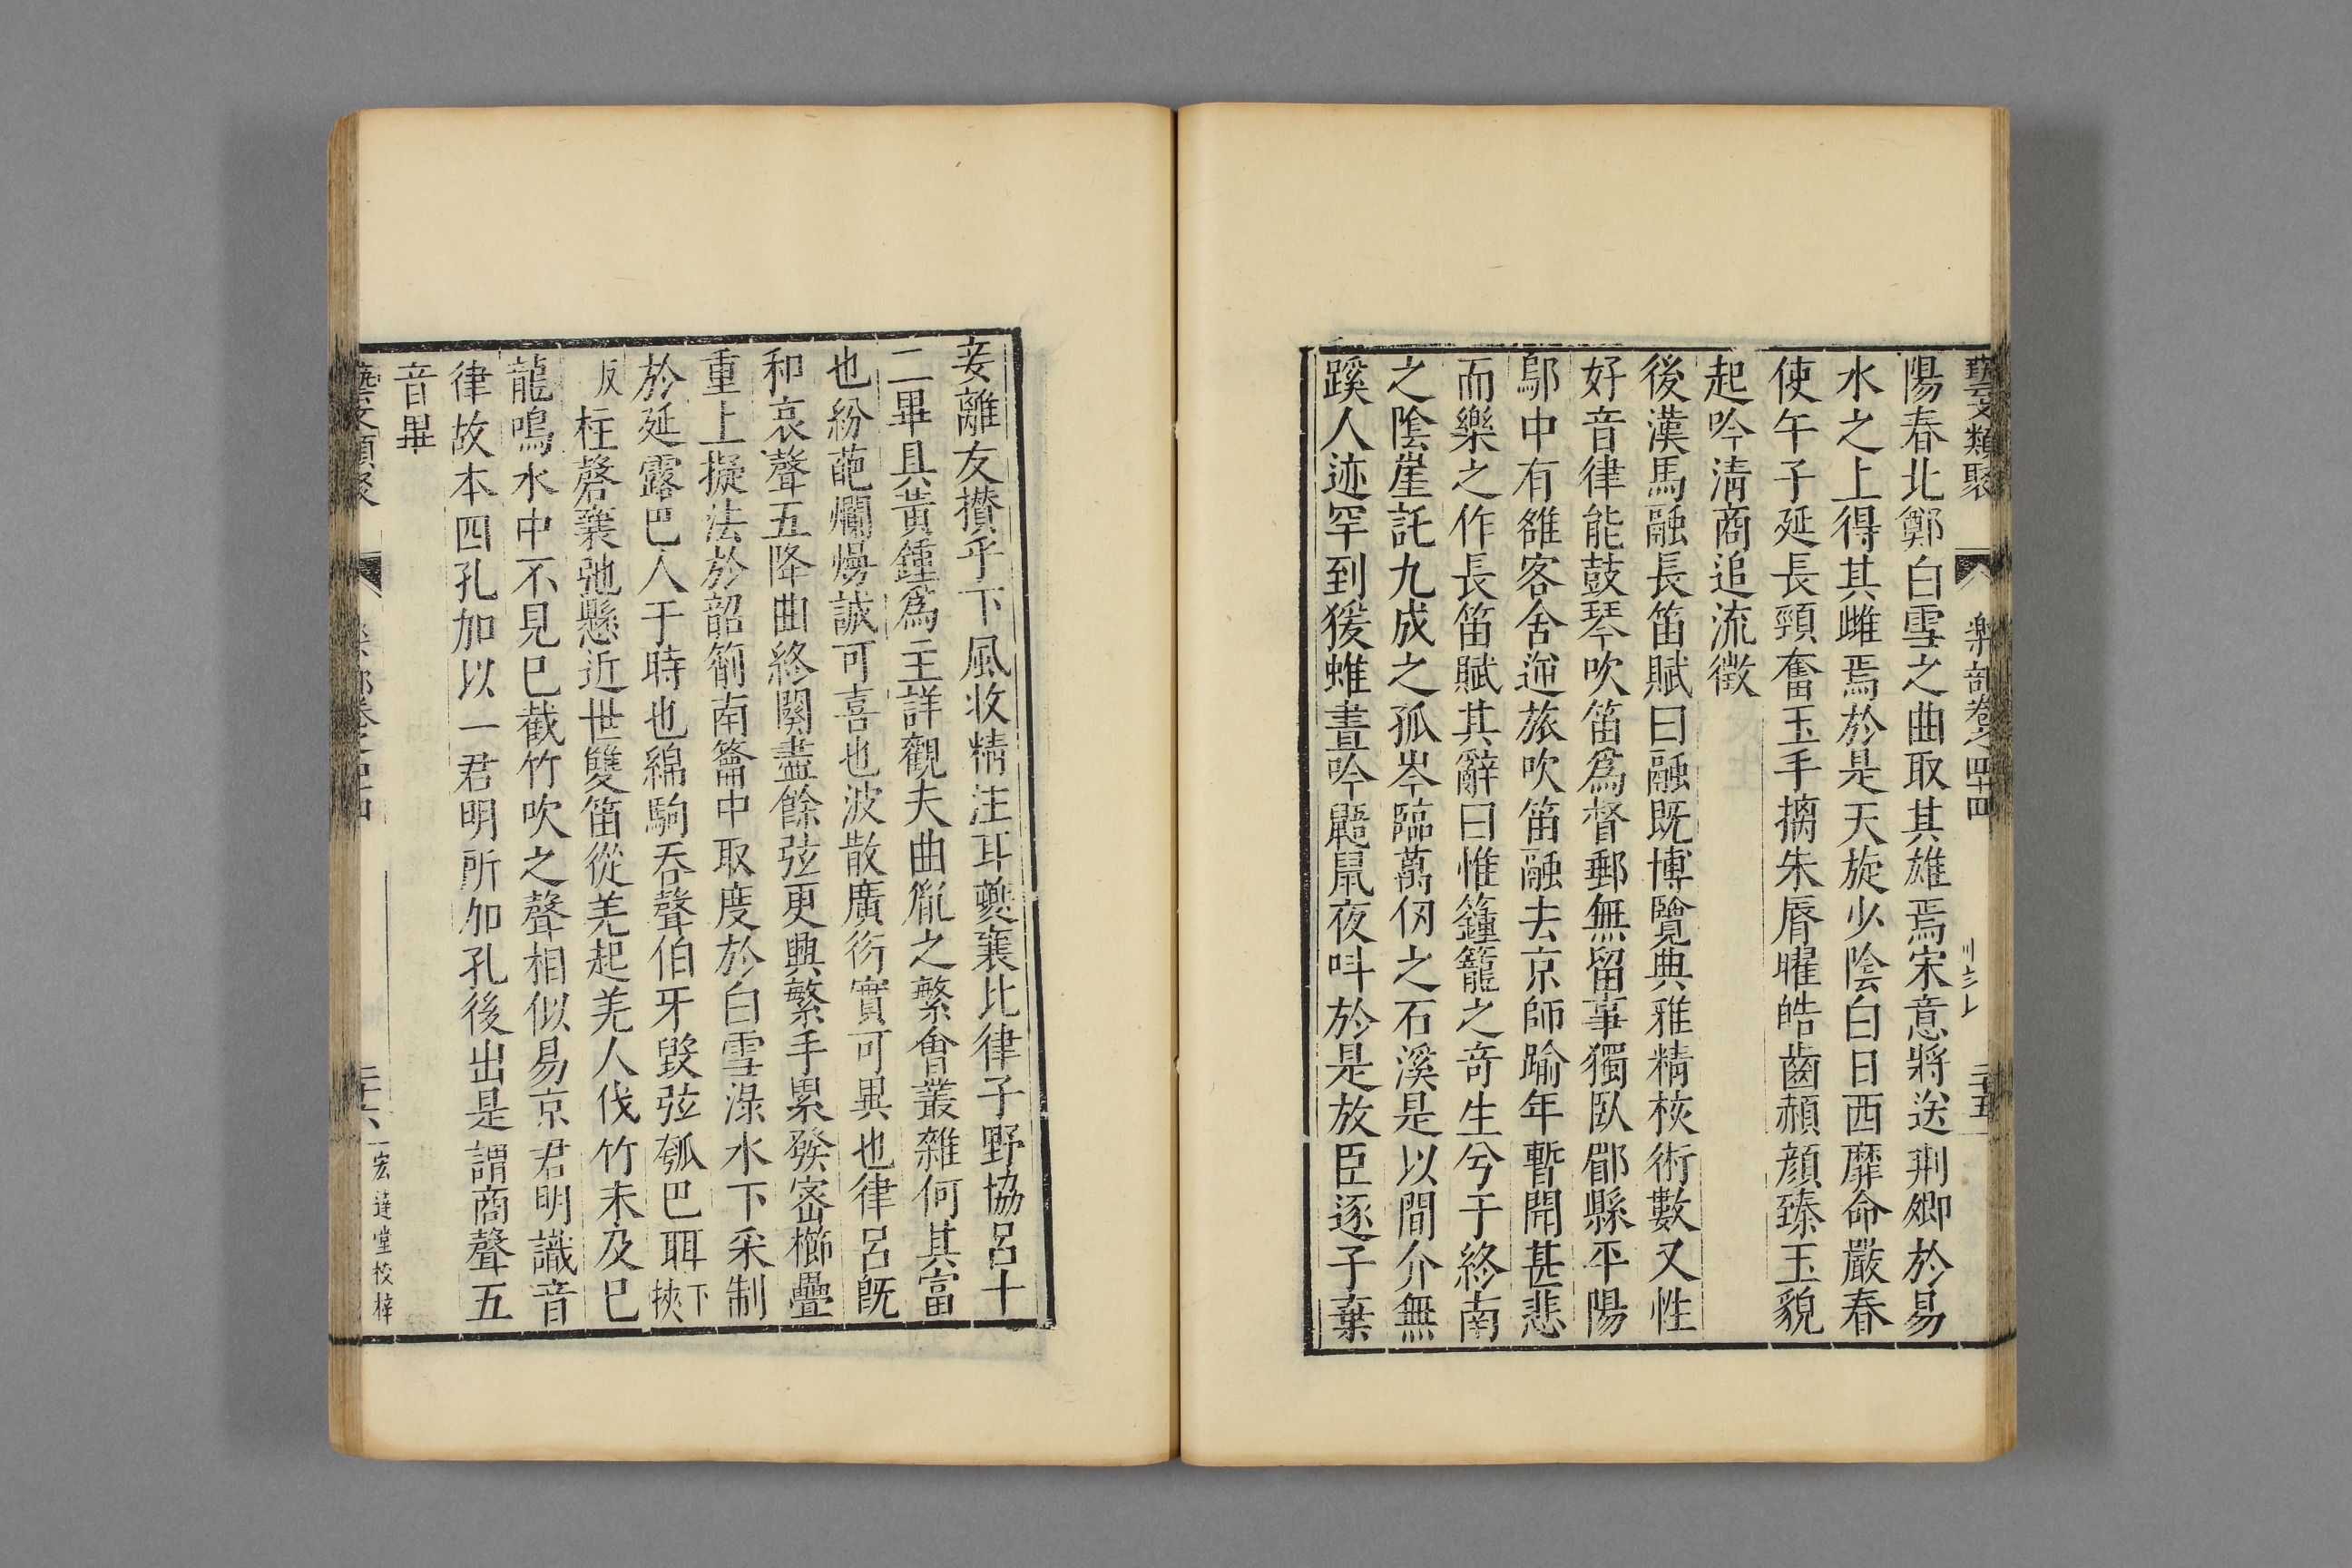 藝文類聚 樂部卷之四十四 二十五
陽春北鄭白雪之曲取其雄焉宋意將送荆卿於易
水之上得其雌焉於是天旋少陰白日西靡命嚴春
使午子延長頸奮玉手摛朱脣曜皓齒頳顔臻玉貌
起吟清商追流徵
後漢馬融長笛賦曰融既博覽典雅精核術數又性
好音律能鼓琴吹笛爲督郵無留事獨臥郿縣平陽
鄔中有雒客舍逆旅吹笛融去京師踰年暫聞甚悲
而樂之作長笛賦其辭曰惟籦籠之奇生兮于終南
之陰崖託九成之孤岑臨萬仭之石溪是以間介無
蹊人迹罕到猨蜼晝吟鼯鼠夜呌於是放臣逐子棄
妾離友攢乎下風收精注耳夔襄比律子野協呂十
二畢具黃鍾爲主詳觀夫曲胤之繁會叢雜何其富
也紛葩爛熳誠可喜也波散廣衍實可異也律呂既
和哀聲五降曲終闋盡餘弦更興繁手累發密櫛疊
重上擬法於韶箾南籥中取度於白雪淥水下采制
於延露巴人于時也綿駒吞聲伯牙毀弦瓠巴耴下挾
反柱磬襄弛懸近世雙笛從羌起羌人伐竹未及已
龍鳴水中不見巳截竹吹之聲相似易京君明識音
律故本四孔加以一君明所加孔後出是謂商聲五
音畢
藝文類聚 樂部卷之四十四 二十六 宏達堂校梓